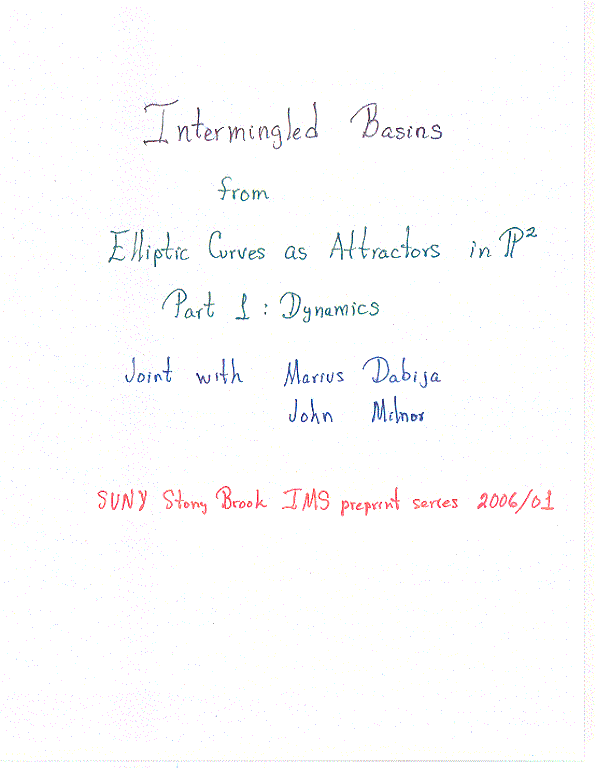 Intermingled Basins
from
Elliptic Curves as Attractors in ℙ²
Part 1 : Dynamics
Joint with Marius Dabija
John Milnor
SUNY Stony Brook IMS preprint series 2006/01